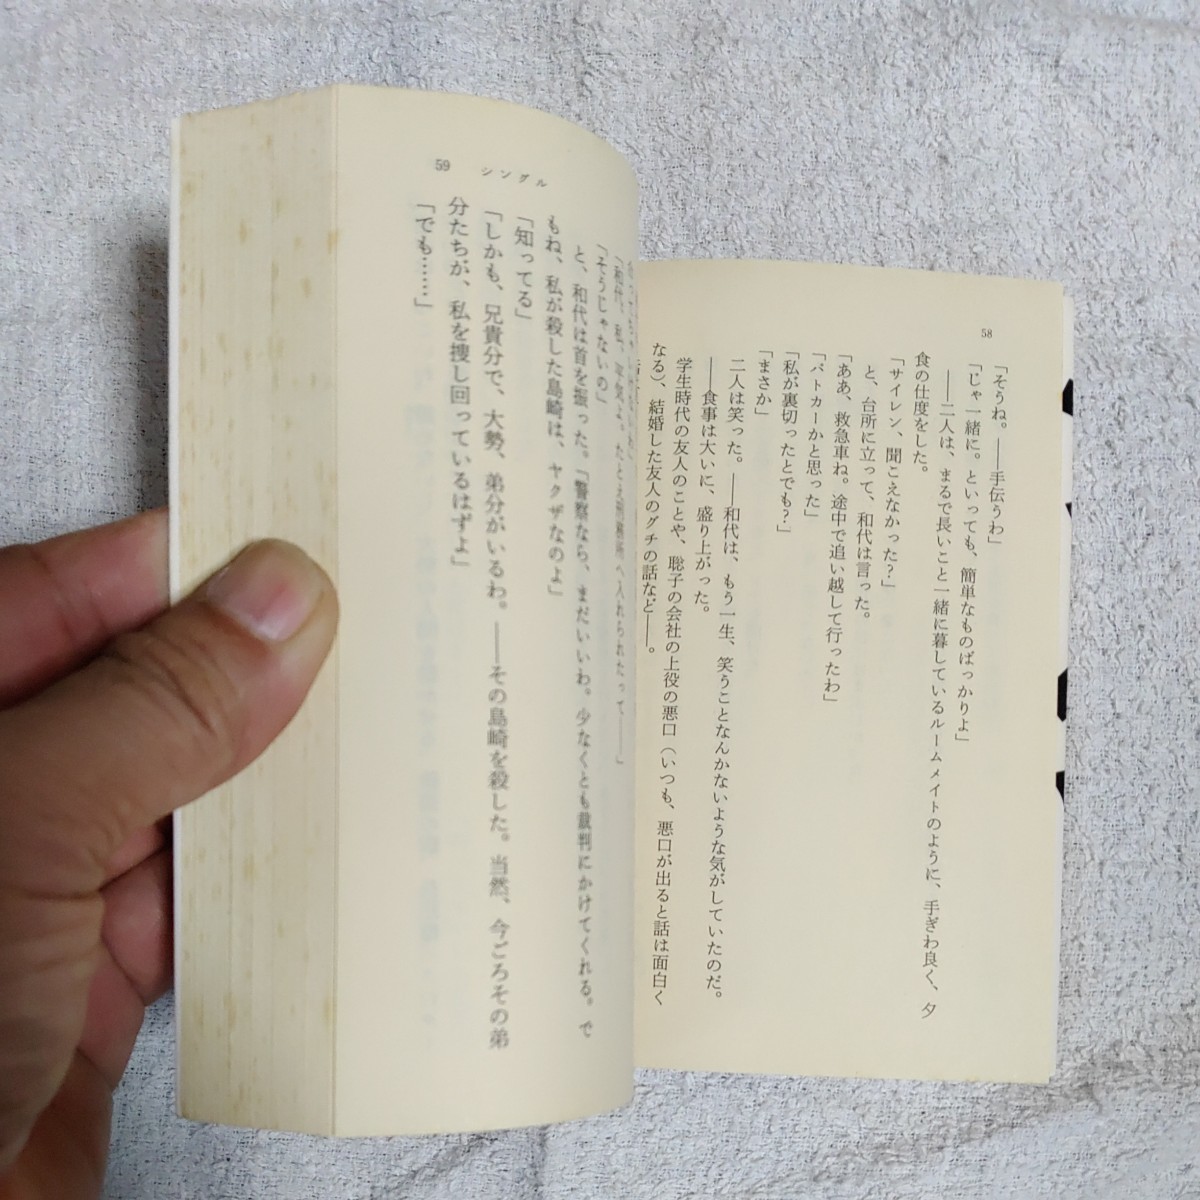 58
「そうね。――手伝うわ」
「じゃ一緒に。といっても、簡単なものばっかりよ」
――二人は、まるで長いこと一緒に暮しているルームメイトのように、手ぎわ良く、夕
食の仕度をした。
「サイレン、聞こえなかった?」
と、台所に立って、和代は言った。
「ああ、救急車ね。途中で追い越して行ったわ」
「パトカーかと思った」
「私が裏切ったとでも?」
「まさか」
二人は笑った。――和代は、もう一生、笑うことなんかないような気がしていたのだ。
――食事は大いに、盛り上がった。
学生時代の友人のことや、聡子の会社の上役の悪口（いつも、悪口が出ると話は面白く
なる）、結婚した友人のグチの話など――。
59 シングル
「和代、私、平気よ。たとえ刑務所へ入れられたって――」
「そうじゃないの」
と、和代は首を振った。「警察なら、まだいいわ。少なくとも裁判にかけてくれる。で
もね、私が殺した島崎は、ヤクザなのよ」
「知ってる」
「しかも、兄貴分で、大勢、弟分がいるわ。――その島崎を殺した。当然、今ごろその弟
分たちが、私を捜し回っているはずよ」
「でも……」